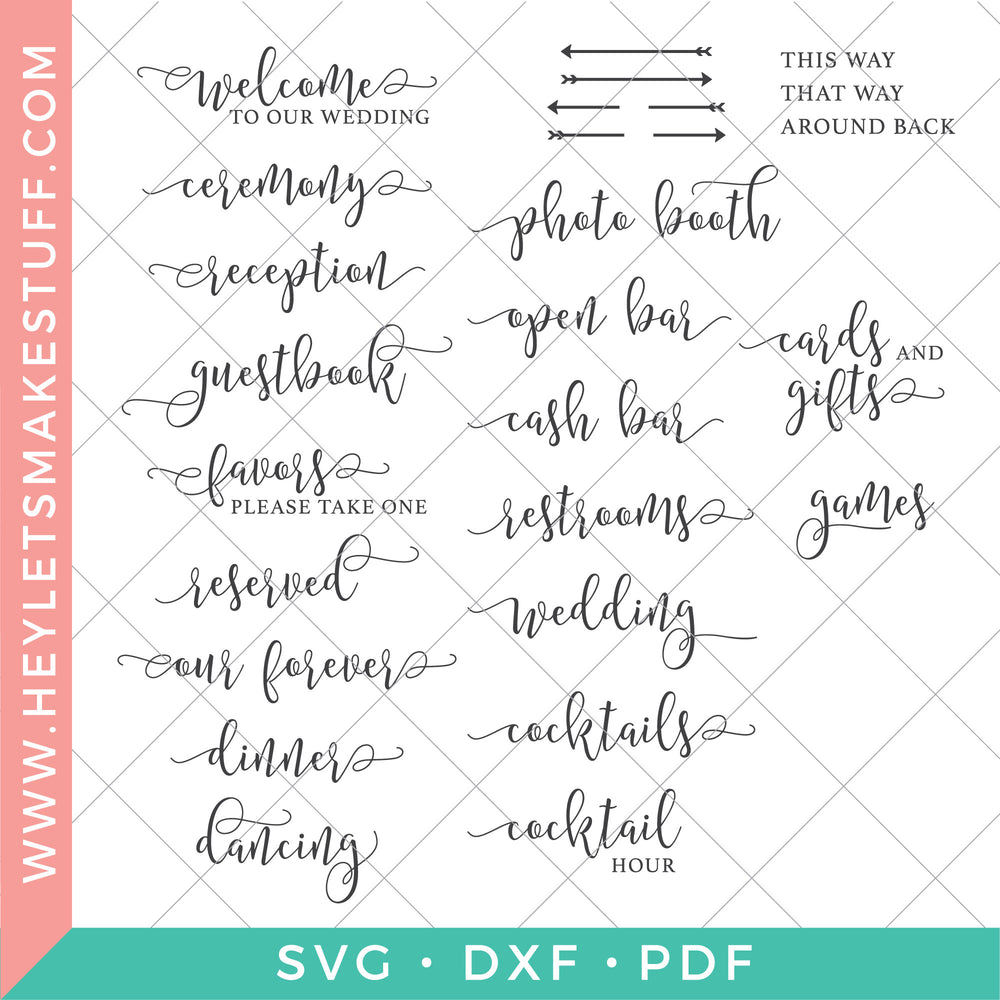 WWW.HEYLETSMAKESTUFF.COM
welcome
TO OUR WEDDING
ceremony
reception
guestbook
favors
PLEASE TAKE ONE
reserved
our forever
dinner
dancing
THIS WAY
THAT WAY
AROUND BACK
photo booth
open bar
cash bar
restrooms
wedding
cocktails
cocktail
HOUR
cards AND
gifts
games
SVG • DXF • PDF